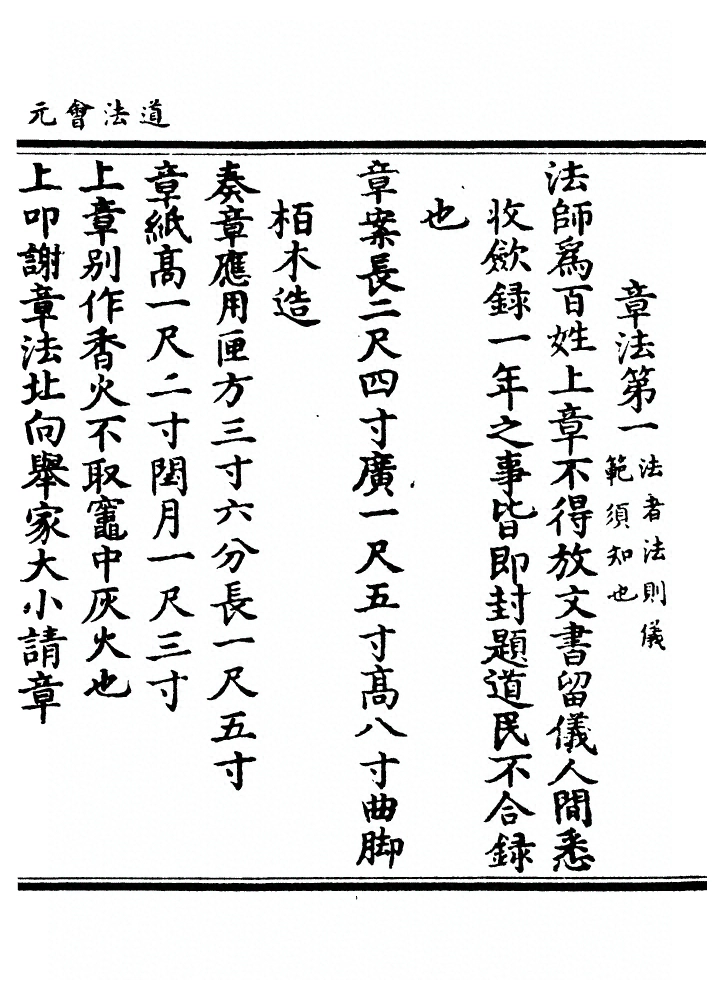 道法會元
章法第一 法者法則儀
範須知也
法師爲百姓上章不得放文書留儀人間悉
收斂録一年之事皆即封題道民不合録
也
章案長二尺四寸廣一尺五寸高八寸曲脚
栢木造
奏章應用匣方三寸六分長一尺五寸
章紙高一尺二寸閏月一尺三寸
上章别作香火不取竈中灰火也
上叩謝章法北向舉家大小請章